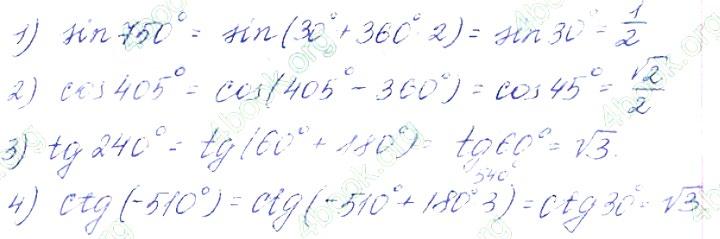 1) sin 750° = sin(30° + 360° 2) = sin 30° = 1/2
2) cos 405° = cos(405° - 360°) = cos 45° = √2/2
3) tg 240° = tg(60° + 180°) = tg 60° = √3.
540°
4) ctg(-510°) = ctg(-510° + 180° 3) = ctg 30° = √3